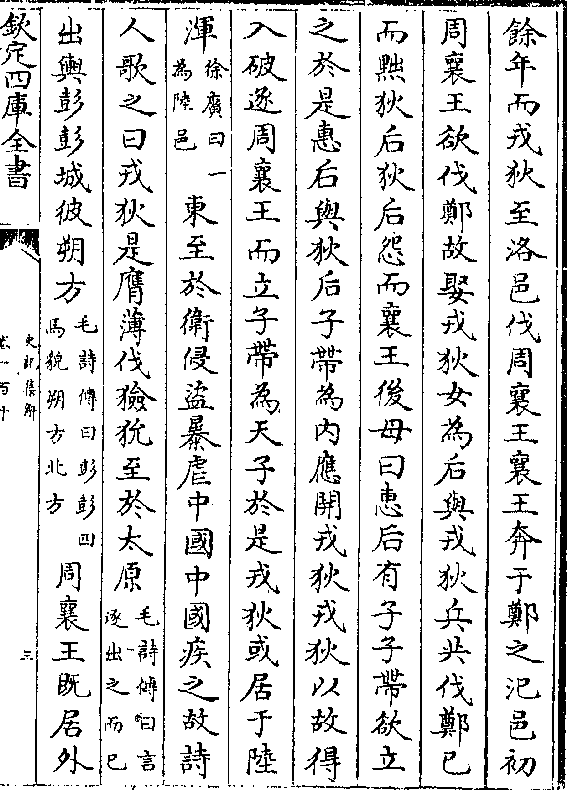 餘年而戎狄至洛邑伐周襄王襄王奔于鄭之氾邑初
周襄王欲伐鄭故娶戎狄女為后與戎狄兵共伐鄭已
而黜狄后狄后怨而襄王後母曰惠后有子子帶欲立
之於是惠后與狄后子帶為內應開戎狄戎狄以故得
入破逐周襄王而立子帶為天子於是戎狄或居于陸
渾徐廣曰一為陸邑東至於衛侵盜暴虐中國中國疾之故詩
人歌之曰戎狄是膺薄伐獫狁至於太原毛詩傳曰言逐出之而已
出輿彭彭城彼朔方毛詩傳曰彭彭四馬貌朔方北方周襄王既居外
欽定四庫全書
史記集解
卷一百十
三